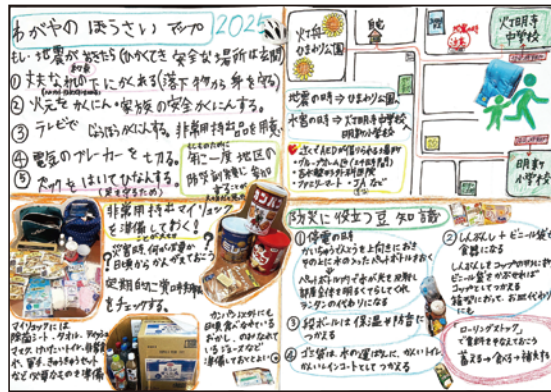 わがやの ぼうさい マップ 2025
もし・地震がおきたら(ひかくてき安全な場所は玄関)
① 丈夫な机の下にかくれる(落下物から身を守る)
② 火元をかくにん・家族の安全かくにんする。
③ テレビで じょうほうかくにん。非常用持出品を用意
④ 電気のブレーカーを切る。
⑤ クツをはいてひなんする。
(足を守るため)
年に一度地区の
防災訓練に参加
非常用持出マイリュック
を準備しておく!
災害時、何が必要か
日頃からかんがえておこう
定期的に賞味期限
をチェックする。
マイリュックには
除菌シート・タオル・ティッシュ
マスク、けいたいトイレ、非常食
水、軍手、きゅうきゅうセット
など必要なものを準備
カンパン
カンパン以外にも
日頃食べなれている
おかし、のみなれて
いるジュースなど
準備しておくとよい
ひまわり公園
自宅
火丁明寺
中学校
明東
小学校
地震の時→ひまわり公園へ
水害の時→火丁明寺中学校へ
明東小学校へ
近くでAEDが借りられる場所
・ファミリーマート・JAなど
防災に役立つ豆知識
① 停電の時
かいちゅうでんとうを上向きにおき
その上に水の入ったペットボトルおく
ペットボトル内で水が光を反射し
部屋全体を明るくてらしてくれ
ランタンの代わりになる
② しんぶんし+ビニール袋で
食器になる
しんぶんしをコップの形に折り
ビニール袋をかぶせれば
コップとしてつかえる
箱型におって、お皿代わり
にも
③ 段ボールは保温や防音に
つかえる
④ ゴミ袋は、水の運ぱんに、かんいトイレ
かんいレインコートとしてつかえる
「ローリングストック」
で食料をそなえておこう
蓄える→食べる→補充